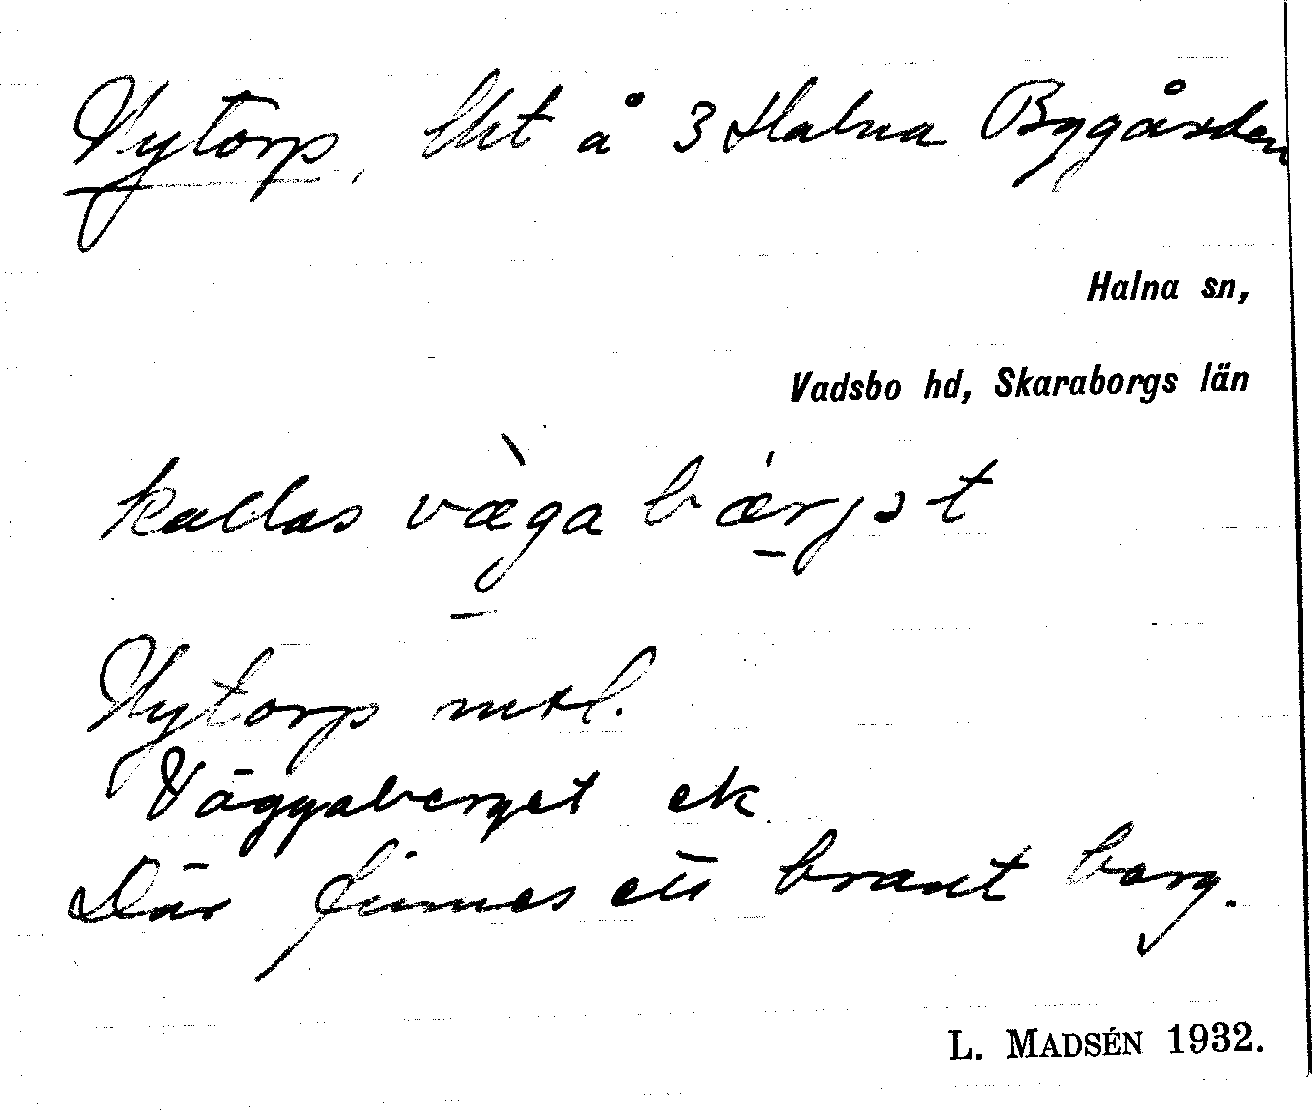 Nytorp, lht å 3 Halna Bygården
Halna sn,
Vadsbo hd, Skaraborgs län
kallas væ̀ga bǽrjət
Nytorp mtl.
Väggaberget ek
Där finnes ett brant berg.
L. MADSÉN 1932.